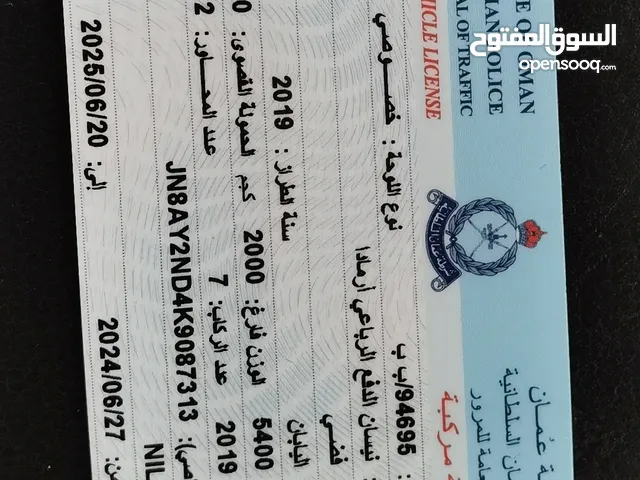 السوق المفتوح
opensooq.com
OMAN
POLICE
OF TRAFFIC
LICENSE
عُمان
السلطانية
للمرور
مركبة
: 94695/ب ب نوع اللوحة : خصوصي
: نيسان الدفع الرباعي أرمادا
فضي
اليابان سنة الطراز : 2019
5400 الوزن فارغ: 2000 كجم الحمولة القصوى: 0
2019 عدد الركاب: 7 عدد المحاور: 2
JN8AY2ND4K9087313
NIL
من: 2024/06/27 إلى: 2025/06/20